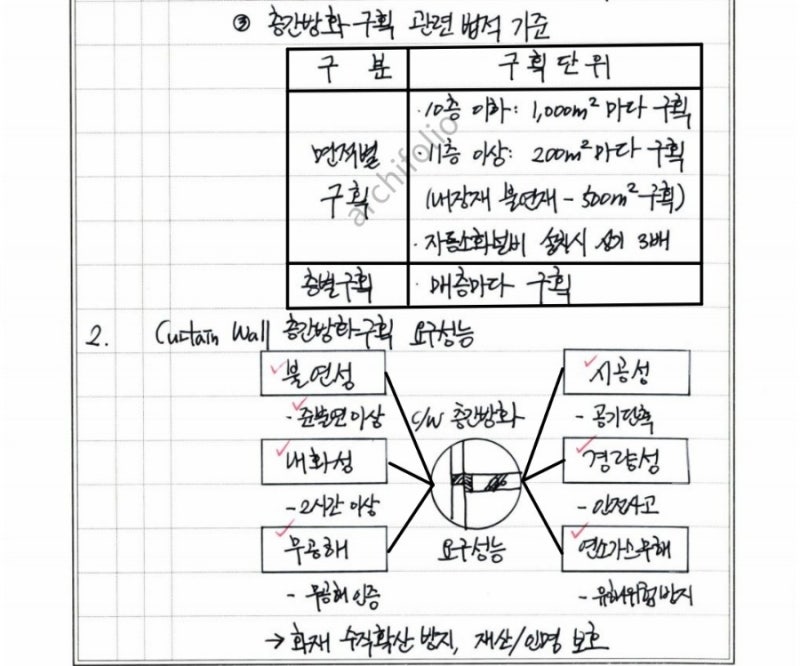 ③ 층간방화구획 관련 법적 기준
구 분
구획단위
면적별 구획
· 10층 이하: 1,000m² 마다 구획
· 11층 이상: 200m² 마다 구획
(내장재 불연재 - 500m² 구획)
· 자동소화설비 설치시 상기 3배
층별구획
· 매층마다 구획
archifolio
2. Curtain Wall 층간방화구획 요구성능
불연성
- 준불연이상
내화성
- 2시간 이상
무공해
- 무공해 인증
C/W 층간방화
요구성능
시공성
- 공기단축
경량성
- 안전사고
연소가스무해
- 유해위험방지
→ 화재 수직확산 방지, 재산/인명 보호